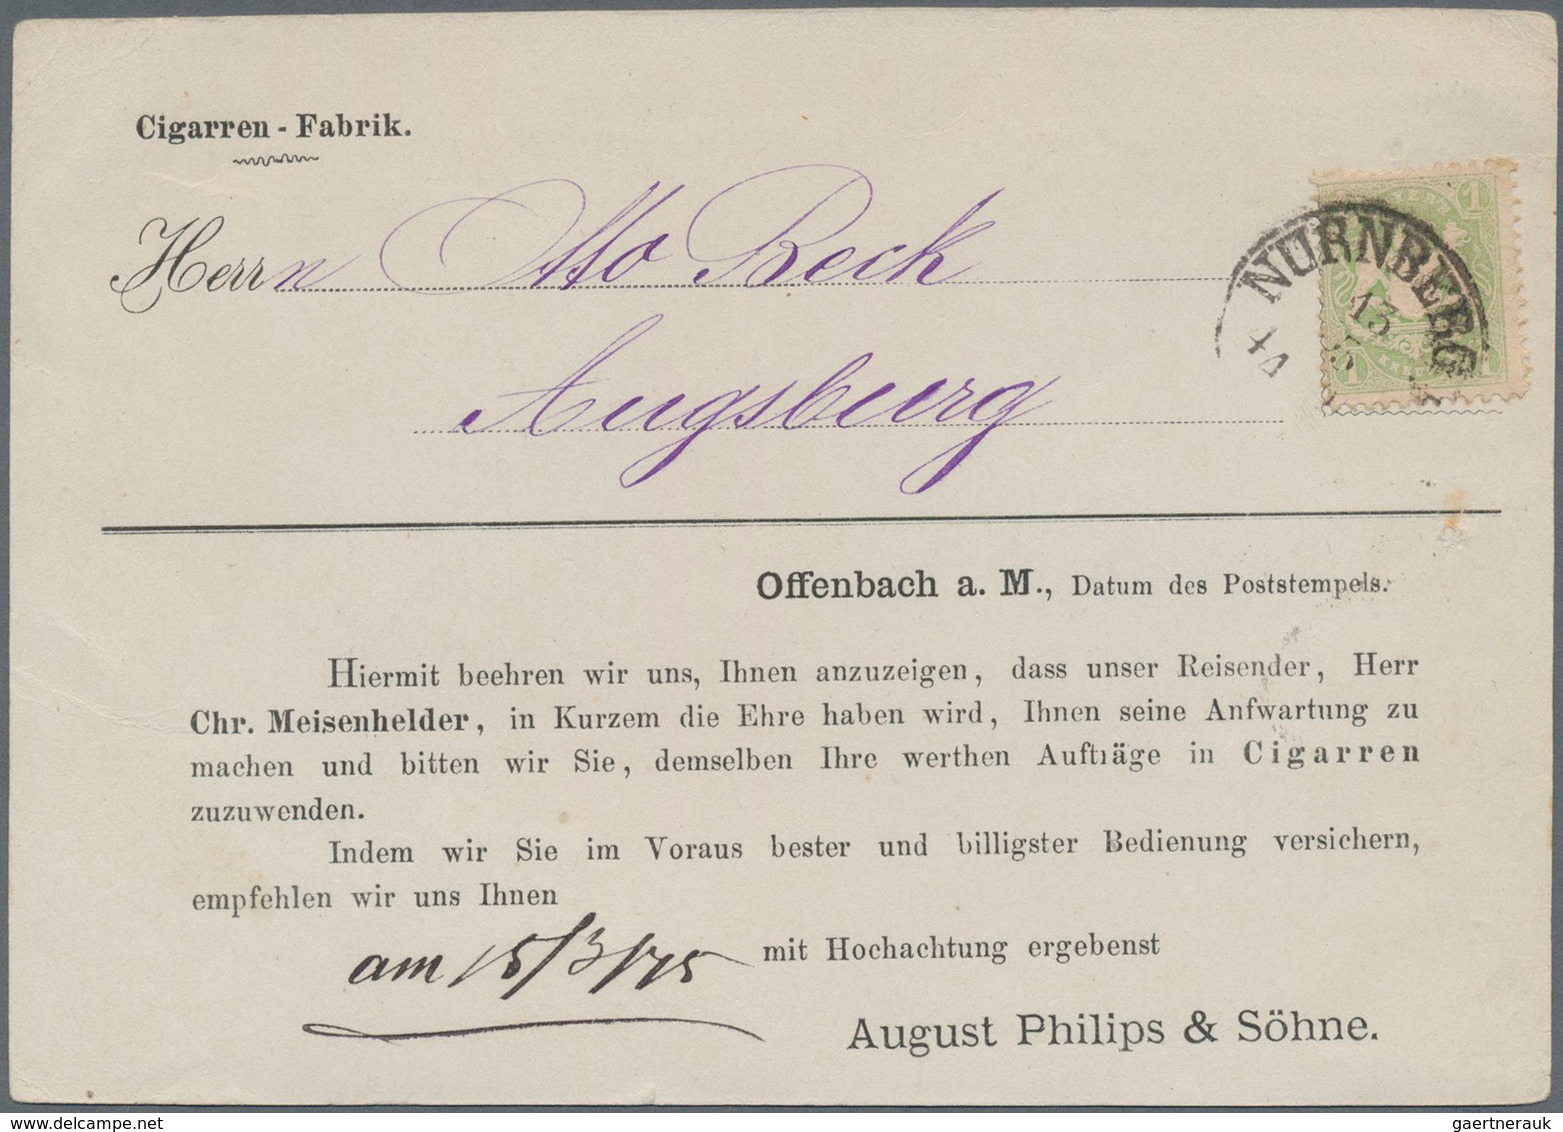 Cigarren - Fabrik.
Herrn Otto Beck
Augsburg
1
NÜRNBERG
13
1
Offenbach a. M., Datum des Poststempels.
Hiermit beehren wir uns, Ihnen anzuzeigen, dass unser Reisender, Herr
Chr. Meisenhelder, in Kurzem die Ehre haben wird, Ihnen seine Anfwartung zu
machen und bitten wir Sie, demselben Ihre werthen Aufträge in Cigarren
zuzuwenden.
Indem wir Sie im Voraus bester und billigster Bedienung versichern,
empfehlen wir uns Ihnen
am 15/3/75 mit Hochachtung ergebenst
August Philips & Söhne.
gaertnerauk @ delcampe.net